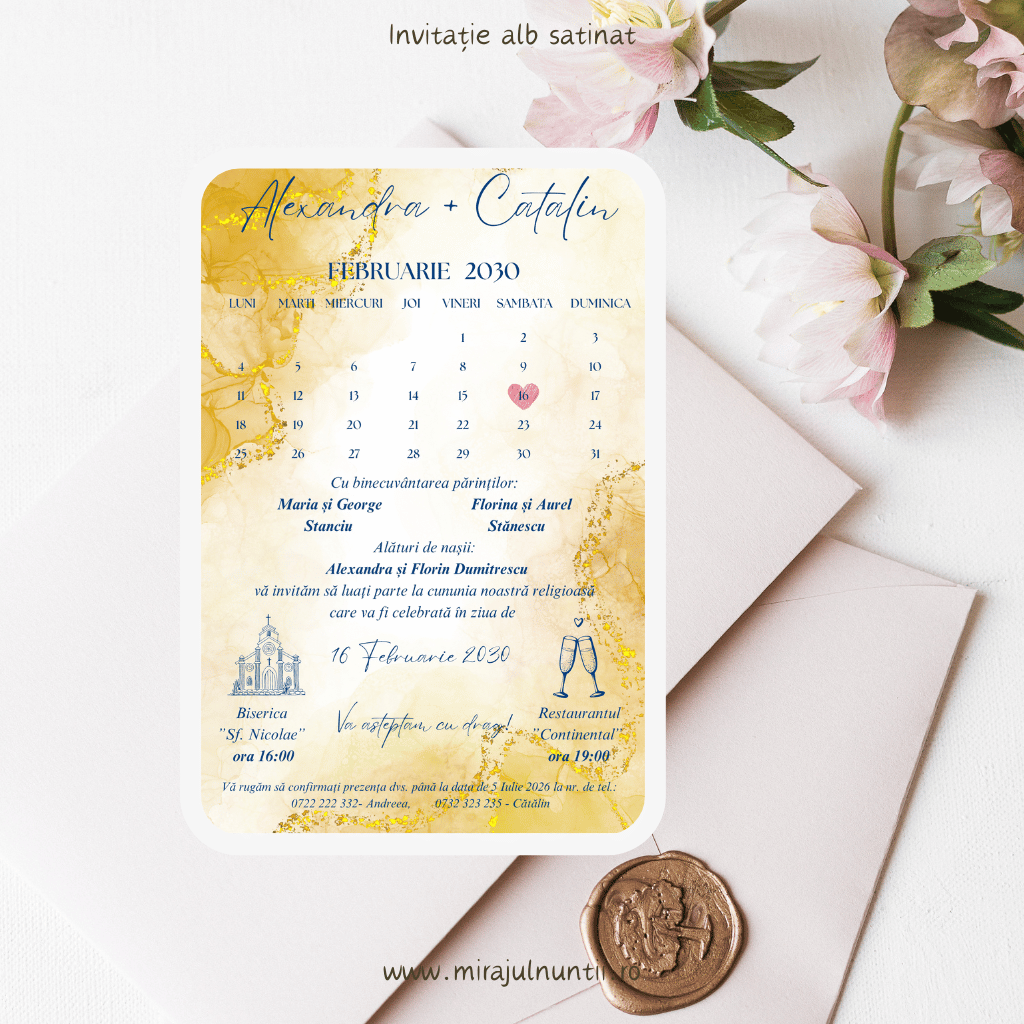 Invitație alb satinat
Alexandra + Catalin
FEBRUARIE 2030
LUNI MARTI MIERCURI JOI VINERI SAMBATA DUMINICA
1 2 3
4 5 6 7 8 9 10
11 12 13 14 15 16 17
18 19 20 21 22 23 24
25 26 27 28 29 30 31
Cu binecuvântarea părinților:
Maria și George Florina și Aurel
Stanciu Stănescu
Alături de nașii:
Alexandra și Florin Dumitrescu
vă invităm să luați parte la cununia noastră religioasă
care va fi celebrată în ziua de
16 Februarie 2030
Biserica Restaurantul
"Sf. Nicolae" Va asteptam cu drag! "Continental"
ora 16:00 ora 19:00
Vă rugăm să confirmați prezența dvs. până la data de 5 Iulie 2026 la nr. de tel.:
0722 222 332- Andreea, 0732 323 235 - Cătălin
www.mirajulnuntii.ro